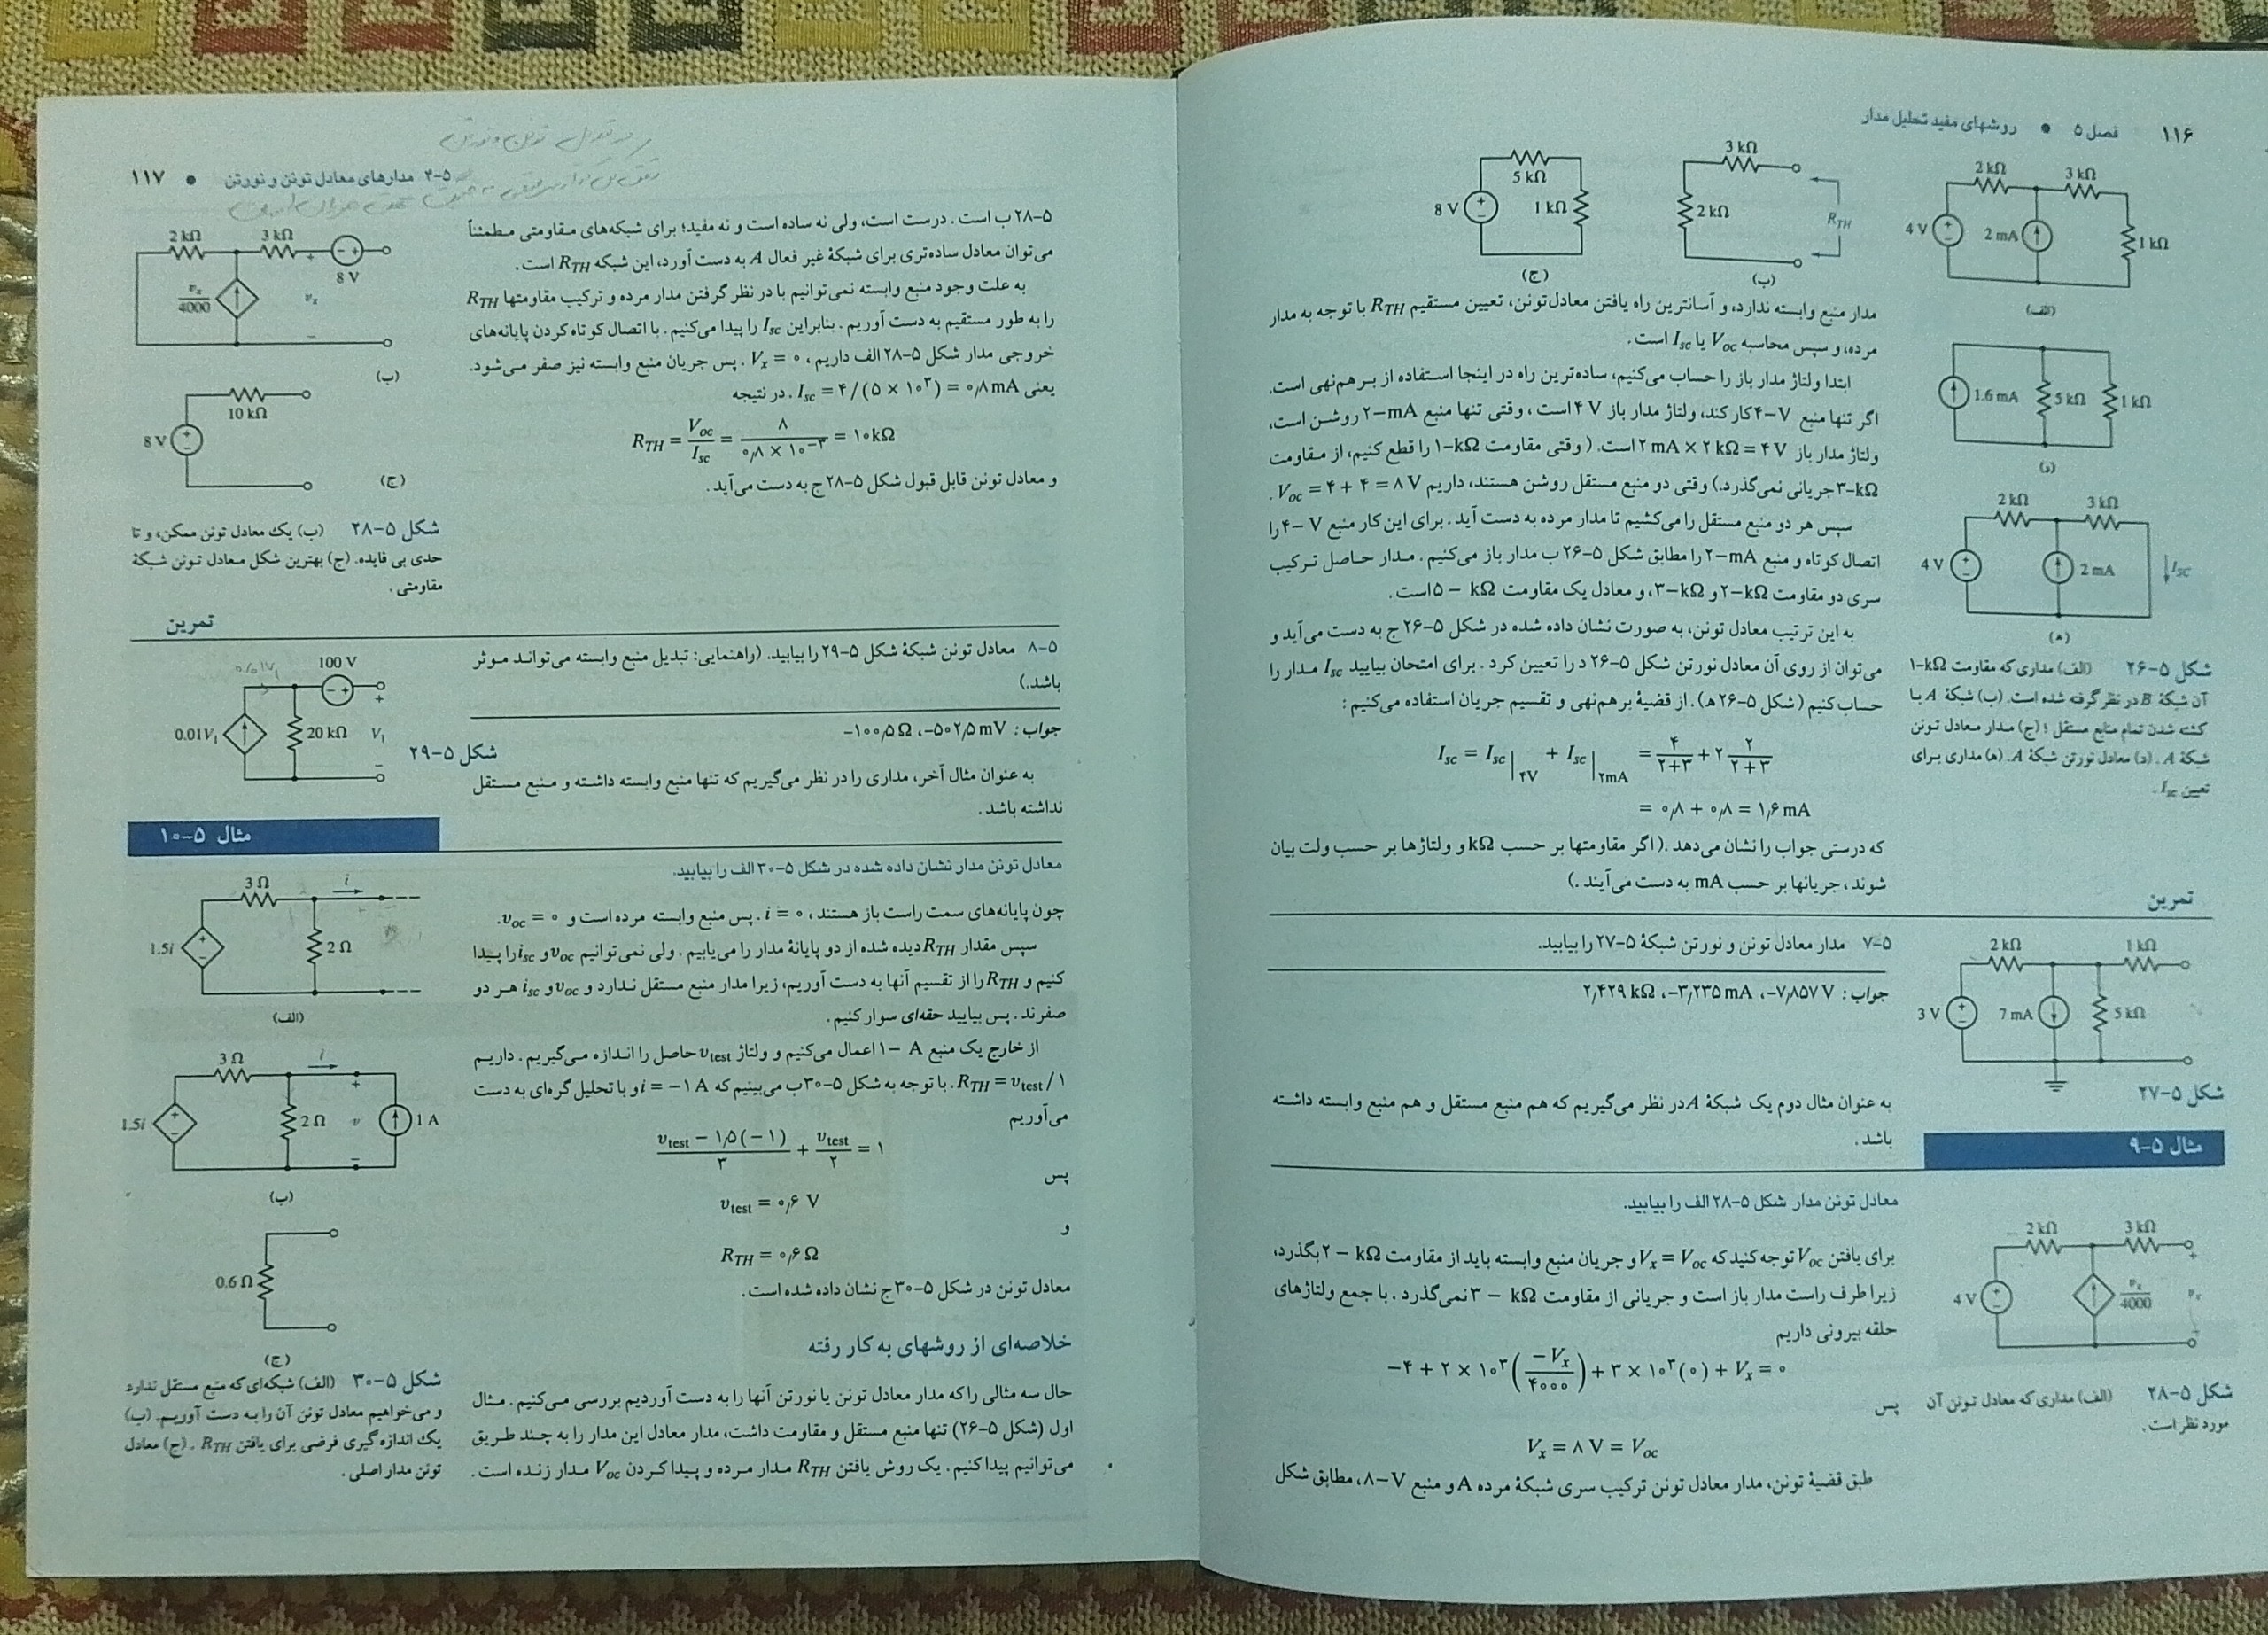 ۱۱۶ فصل ۵ • روشهای مفید تحلیل مدار
2 kΩ
3 kΩ
4 V
2 mA
1 kΩ
(الف)
3 kΩ
2 kΩ
R_TH
(ب)
5 kΩ
8 V
1 kΩ
(ج)
1.6 mA
5 kΩ
1 kΩ
(د)
2 kΩ
3 kΩ
4 V
2 mA
I_SC
(ه)
شکل ۵-۲۶ (الف) مداری که مقاومت ۱-kΩ
آن شبکهٔ B در نظر گرفته شده است. (ب) شبکهٔ A با
کشته شدن تمام منابع مستقل؛ (ج) مدار معادل تونن
شبکهٔ A. (د) معادل نورتن شبکهٔ A. (ه) مداری برای
تعیین I_sc.
مدار منبع وابسته ندارد، و آسانترین راه یافتن معادل‌تونن، تعیین مستقیم R_TH با توجه به مدار
مرده، و سپس محاسبه V_OC یا I_sc است.
ابتدا ولتاژ مدار باز را حساب می‌کنیم، ساده‌ترین راه در اینجا استفاده از برهم‌نهی است.
اگر تنها منبع ۴-V کار کند، ولتاژ مدار باز ۴ V است، وقتی تنها منبع ۲-mA روشن است،
ولتاژ مدار باز ۲ mA × ۲ kΩ = ۴ V است. (وقتی مقاومت ۱-kΩ را قطع کنیم، از مقاومت
۳-kΩ جریانی نمی‌گذرد.) وقتی دو منبع مستقل روشن هستند، داریم V_OC = ۴ + ۴ = ۸ V.
سپس هر دو منبع مستقل را می‌کشیم تا مدار مرده به دست آید. برای این کار منبع ۴-V را
اتصال کوتاه و منبع ۲-mA را مطابق شکل ۵-۲۶ ب مدار باز می‌کنیم. مدار حاصل ترکیب
سری دو مقاومت ۲-kΩ و ۳-kΩ، و معادل یک مقاومت ۵-kΩ است.
به این ترتیب معادل تونن، به صورت نشان داده شده در شکل ۵-۲۶ ج به دست می‌آید و
می‌توان از روی آن معادل نورتن شکل ۵-۲۶ د را تعیین کرد. برای امتحان بیایید I_sc مدار را
حساب کنیم (شکل ۵-۲۶ ه). از قضیهٔ برهم‌نهی و تقسیم جریان استفاده می‌کنیم:
I_sc = I_sc|۴V + I_sc|۲mA = ۴/(۲+۳) + ۲ ۲/(۲+۳)
= ۰٫۸ + ۰٫۸ = ۱٫۶ mA
که درستی جواب را نشان می‌دهد. (اگر مقاومتها بر حسب kΩ و ولتاژها بر حسب ولت بیان
شوند، جریانها بر حسب mA به دست می‌آیند.)
تمرین
۵-۷ مدار معادل تونن و نورتن شبکهٔ ۵-۲۷ را بیابید.
جواب: ۷٫۸۵۷ V-، ۳٫۲۳۵ mA-، ۲٫۴۲۹ kΩ
2 kΩ
1 kΩ
3 V
7 mA
5 kΩ
شکل ۵-۲۷
به عنوان مثال دوم یک شبکهٔ A در نظر می‌گیریم که هم منبع مستقل و هم منبع وابسته داشته
باشد.
مثال ۵-۹
معادل تونن مدار شکل ۵-۲۸ الف را بیابید.
برای یافتن V_OC توجه کنید که V_x = V_OC و جریان منبع وابسته باید از مقاومت ۲-kΩ بگذرد،
زیرا طرف راست مدار باز است و جریانی از مقاومت ۳-kΩ نمی‌گذرد. با جمع ولتاژهای
حلقه بیرونی داریم
-۴ + ۲ × ۱۰^۳ (-V_x/۴۰۰۰) + ۳ × ۱۰^۳ (۰) + V_x = ۰
پس
V_x = ۸ V = V_OC
طبق قضیهٔ تونن، مدار معادل تونن ترکیب سری شبکهٔ مرده A و منبع ۸-V، مطابق شکل
2 kΩ
3 kΩ
4 V
v_x/4000
v_x
شکل ۵-۲۸ (الف) مداری که معادل تونن آن
مورد نظر است.
۵-۴ مدارهای معادل تونن و نورتن • ۱۱۷
۵-۲۸ ب است. درست است، ولی نه ساده است و نه مفید؛ برای شبکه‌های مقاومتی مطمئناً
می‌توان معادل ساده‌تری برای شبکهٔ غیر فعال A به دست آورد، این شبکه R_TH است.
به علت وجود منبع وابسته نمی‌توانیم با در نظر گرفتن مدار مرده و ترکیب مقاومتها R_TH
را به طور مستقیم به دست آوریم. بنابراین I_sc را پیدا می‌کنیم. با اتصال کوتاه کردن پایانه‌های
خروجی مدار شکل ۵-۲۸ الف داریم، V_x = ۰. پس جریان منبع وابسته نیز صفر می‌شود.
یعنی I_sc = ۴/(۵ × ۱۰^۳) = ۰٫۸ mA. در نتیجه
R_TH = V_OC/I_sc = ۸/(۰٫۸ × ۱۰^-۳) = ۱۰ kΩ
و معادل تونن قابل قبول شکل ۵-۲۸ ج به دست می‌آید.
2 kΩ
3 kΩ
8 V
v_x/4000
v_x
(ب)
10 kΩ
8 V
(ج)
شکل ۵-۲۸ (ب) یک معادل تونن ممکن، و تا
حدی بی فایده. (ج) بهترین شکل معادل تونن شبکهٔ
مقاومتی.
تمرین
۵-۸ معادل تونن شبکهٔ شکل ۵-۲۹ را بیابید. (راهنمایی: تبدیل منبع وابسته می‌تواند موثر
باشد.)
جواب: ۵۰۲٫۵ mV-، ۱۰۰٫۵ Ω-
100 V
0.01V_1
20 kΩ
V_1
شکل ۵-۲۹
به عنوان مثال آخر، مداری را در نظر می‌گیریم که تنها منبع وابسته داشته و منبع مستقل
نداشته باشد.
مثال ۵-۱۰
معادل تونن مدار نشان داده شده در شکل ۵-۳۰ الف را بیابید.
چون پایانه‌های سمت راست باز هستند، i = ۰. پس منبع وابسته مرده است و v_OC = ۰.
سپس مقدار R_TH دیده شده از دو پایانهٔ مدار را می‌یابیم. ولی نمی‌توانیم v_OC و i_SC را پیدا
کنیم و R_TH را از تقسیم آنها به دست آوریم، زیرا مدار منبع مستقل ندارد و v_OC و i_SC هر دو
صفرند. پس بیایید حقه‌ای سوار کنیم.
از خارج یک منبع ۱-A اعمال می‌کنیم و ولتاژ v_test حاصل را اندازه می‌گیریم. داریم
R_TH = v_test/۱. با توجه به شکل ۵-۳۰ ب می‌بینیم که i = -۱ A و با تحلیل گره‌ای به دست
می‌آوریم
(v_test - ۱٫۵(-۱))/۳ + v_test/۲ = ۱
پس
v_test = ۰٫۶ V
و
R_TH = ۰٫۶ Ω
معادل تونن در شکل ۵-۳۰ ج نشان داده شده است.
3 Ω
i
1.5i
2 Ω
(الف)
3 Ω
i
1.5i
2 Ω
v
1 A
(ب)
0.6 Ω
(ج)
شکل ۵-۳۰ (الف) شبکه‌ای که منبع مستقل ندارد
و می‌خواهیم معادل تونن آن را به دست آوریم. (ب)
یک اندازه‌گیری فرضی برای یافتن R_TH. (ج) معادل
تونن مدار اصلی.
خلاصه‌ای از روشهای به کار رفته
حال سه مثالی را که مدار معادل تونن یا نورتن آنها را به دست آوردیم بررسی می‌کنیم. مثال
اول (شکل ۵-۲۶) تنها منبع مستقل و مقاومت داشت، مدار معادل این مدار را به چند طریق
می‌توانیم پیدا کنیم. یک روش یافتن R_TH مدار مرده و پیدا کردن V_OC مدار زنده است.